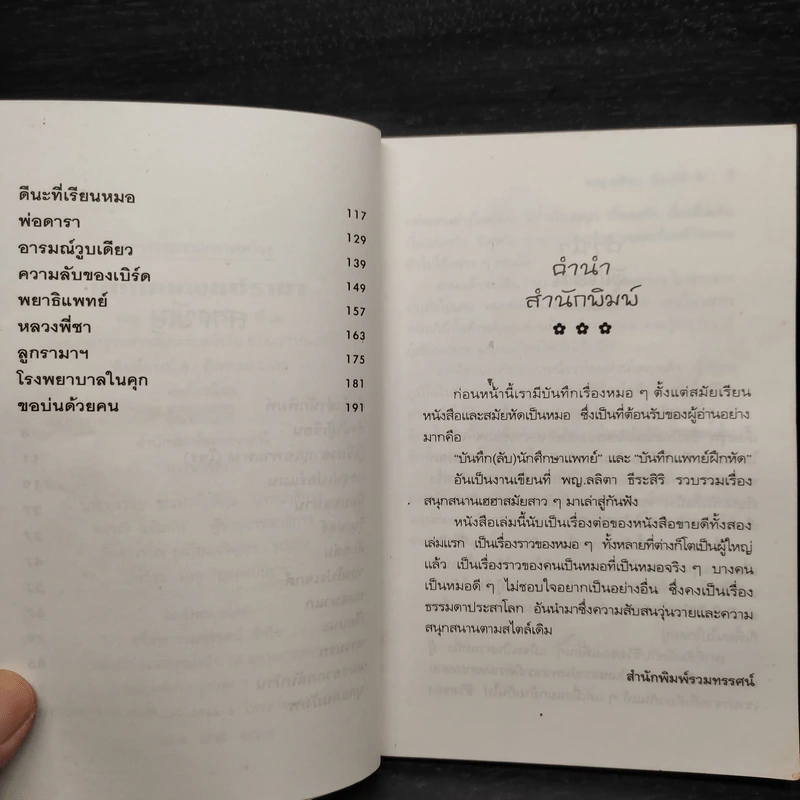 ดีนะที่เรียนหมอ 117
พ่อดารา 129
อารมณ์วูบเดียว 139
ความลับของเบิร์ด 149
พยาธิแพทย์ 157
หลวงพี่ซา 163
ลูกรามาฯ 175
โรงพยาบาลในคุก 181
ขอบ่นด้วยคน 191
คำนำ
สำนักพิมพ์
ก่อนหน้านี้เรามีบันทึกเรื่องหมอ ๆ ตั้งแต่สมัยเรียน
หนังสือและสมัยหัดเป็นหมอ ซึ่งเป็นที่ต้อนรับของผู้อ่านอย่าง
มากคือ
“บันทึก(ลับ)นักศึกษาแพทย์” และ “บันทึกแพทย์ฝึกหัด”
อันเป็นงานเขียนที่ พญ.ลลิตา ธีระสิริ รวบรวมเรื่อง
สนุกสนานเฮฮาสมัยสาว ๆ มาเล่าสู่กันฟัง
หนังสือเล่มนี้นับเป็นเรื่องต่อของหนังสือขายดีทั้งสอง
เล่มแรก เป็นเรื่องราวของหมอ ๆ ทั้งหลายที่ต่างก็โตเป็นผู้ใหญ่
แล้ว เป็นเรื่องราวของคนเป็นหมอที่เป็นหมอจริง ๆ บางคน
เป็นหมอดี ๆ ไม่ชอบใจอยากเป็นอย่างอื่น ซึ่งคงเป็นเรื่อง
ธรรมดาประสาโลก อันนำมาซึ่งความสับสนวุ่นวายและความ
สนุกสนานตามสไตล์เดิม
สำนักพิมพ์รวมทรรศน์